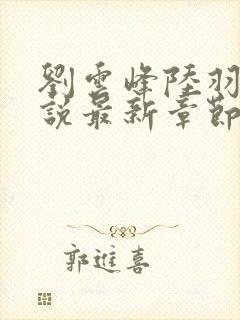 劉雲峰陸羽
說最新章節
郭進喜